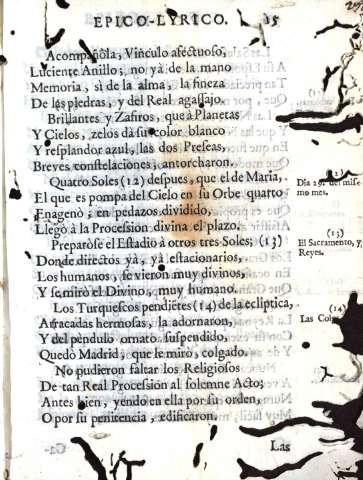 EPICO-LYRICO.
Acompañòla, Vinculo afectuoso,
Luciente Anillo; no yà de la mano
Memoria, sì de la alma, la fineza
De las piedras, y del Real agassajo.
Brillantes y Zafiros, que à Planetas
Y Cielos, zelos dà su color blanco
Y resplandor azul, las dos Preseas,
Breves constelaciones, antorcharon.
Quatro Soles (12) despues, que el de Maria,
El que es pompa del Cielo en su Orbe quarto
Enagenò; en pedazos dividido,
Llegò à la Procession divina el plazo.
Preparòse el Estadio à otros tres Soles; (13)
Donde directos yà, yà estacionarios,
Los humanos, se vieron muy divinos,
Y se mirò el Divino, muy humano.
Los Turquescos pendiẽtes (14) de la ecliptica,
Atracadas hermosas, la adornaron,
Y del pendulo ornato suspendido,
Quedò Madrid, que le mirò, colgado.
No pudieron faltar los Religiosos
De tan Real Procession al solemne Acto;
Antes bien, yendo en ella por su orden,
O por su penitencia, edificaron.
Las
Dia 29. del mismo mes.
(13)
El Sacramento, y Reyes.
(14)
Las